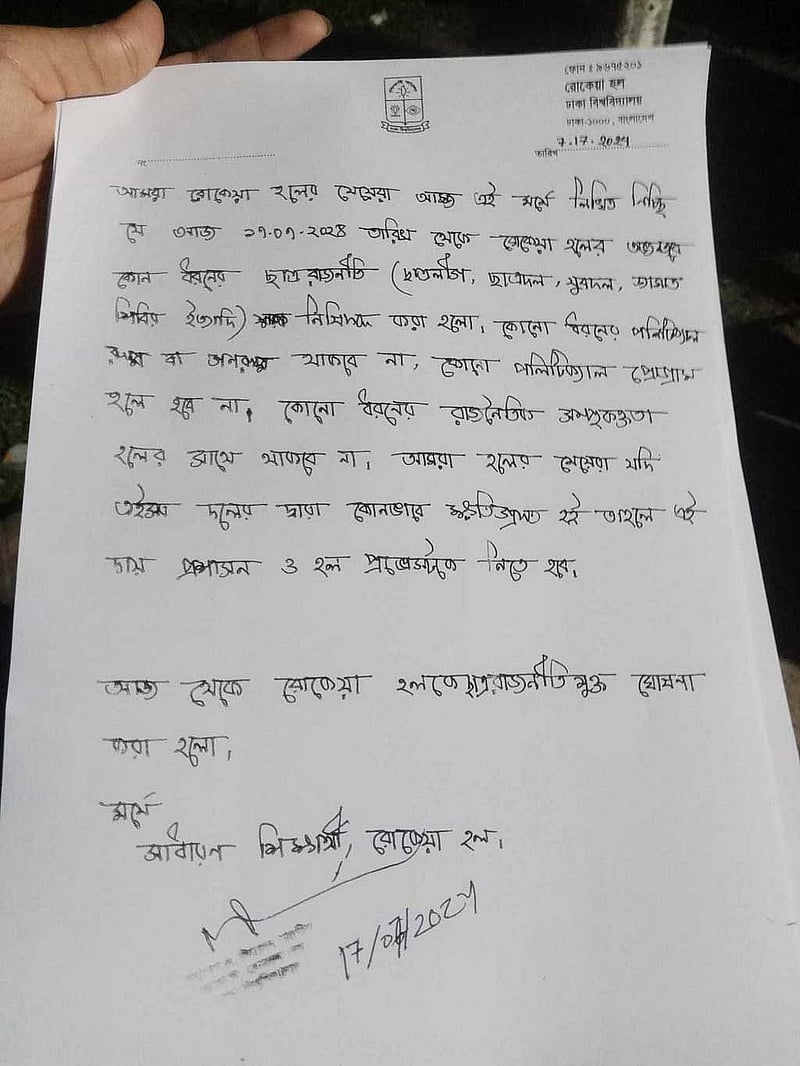 ফোন : ৯৬৭৫২০১
রোকেয়া হল
ঢাকা বিশ্ববিদ্যালয়
ঢাকা-১০০০, বাংলাদেশ
নং
তারিখ 7.17.2024
আমরা রোকেয়া হলের মেয়েরা আজ এই মর্মে লিখিত নিচ্ছি
যে আজ ১৭-০৭-২০২৪ তারিখ থেকে রোকেয়া হলের অভ্যন্তরে
কোন ধরনের ছাত্ররাজনীতি (ছাত্রলীগ, ছাত্রদল, যুবদল, জামাত
শিবির ইত্যাদি) নিষিদ্ধ করা হলো। কোনো ধরনের পলিটিক্যাল
রুম বা গনরুম থাকবে না, কোনো পলিটিক্যাল প্রোগ্রাম
হলে হবে না। কোনো ধরনের রাজনৈতিক সম্পৃক্ততা
হলের সাথে থাকবে না। আমরা হলের মেয়েরা যদি
এইসব দলের দ্বারা কোনভাবে ক্ষতিগ্রস্ত হই তাহলে এই
দায় প্রশাসন ও হল প্রভোস্টকে নিতে হবে।
আজ থেকে রোকেয়া হলকে ছাত্ররাজনীতিমুক্ত ঘোষনা
করা হলো।
মর্মে
সাধারন শিক্ষার্থী, রোকেয়া হল।
17/07/2024